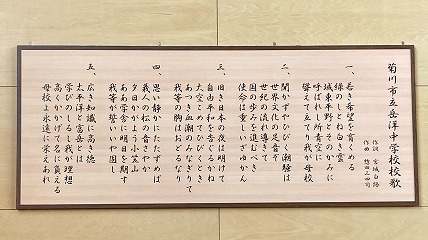 菊川市立岳洋中学校校歌
作詞 宮城白路
作曲
一、若き希望を育くめる
緑のしとね白き雲
城東平野とそのかみに
呼ばれし所青空に
聳えて立てり我が母校
二、聞かずやひびく潮騒は
世界文化の足音ぞ
世紀の流れ導きて
国の歩みを進むべき
使命は重しいざゆかん
三、旧き日本の夜は明けて
自由平和の香ぐるかね
大空こめてひびくとき
あつき血潮のみなぎりて
我等の胸はおどるなり
四、思い静かにたたずめば
義人の松の音さやか
夕日かがよう小笠山
ああ学舎に明日を期す
我等が誓いいや固し
五、広き知識に高き徳
太平洋と富岳とは
学びの庭の我が理想
高くかかげて名に負える
母校よ永遠に栄えあれ